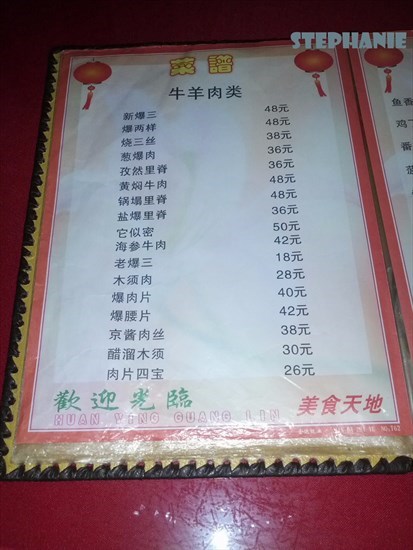 STEPHANIE
菜譜
牛羊肉类
新爆三 48元
爆两样 48元
烧三丝 38元
葱爆肉 36元
孜然里脊 36元
黄焖牛肉 48元
锅塌里脊 48元
盐爆里脊 36元
它似密 50元
海参牛肉 42元
老爆三 18元
木须肉 28元
爆肉片 40元
爆腰片 42元
京酱肉丝 38元
醋溜木须 30元
肉片四宝 26元
歡迎光臨
HUAN YING GUANG LIN
美食天地
鱼香
鸡丁
番